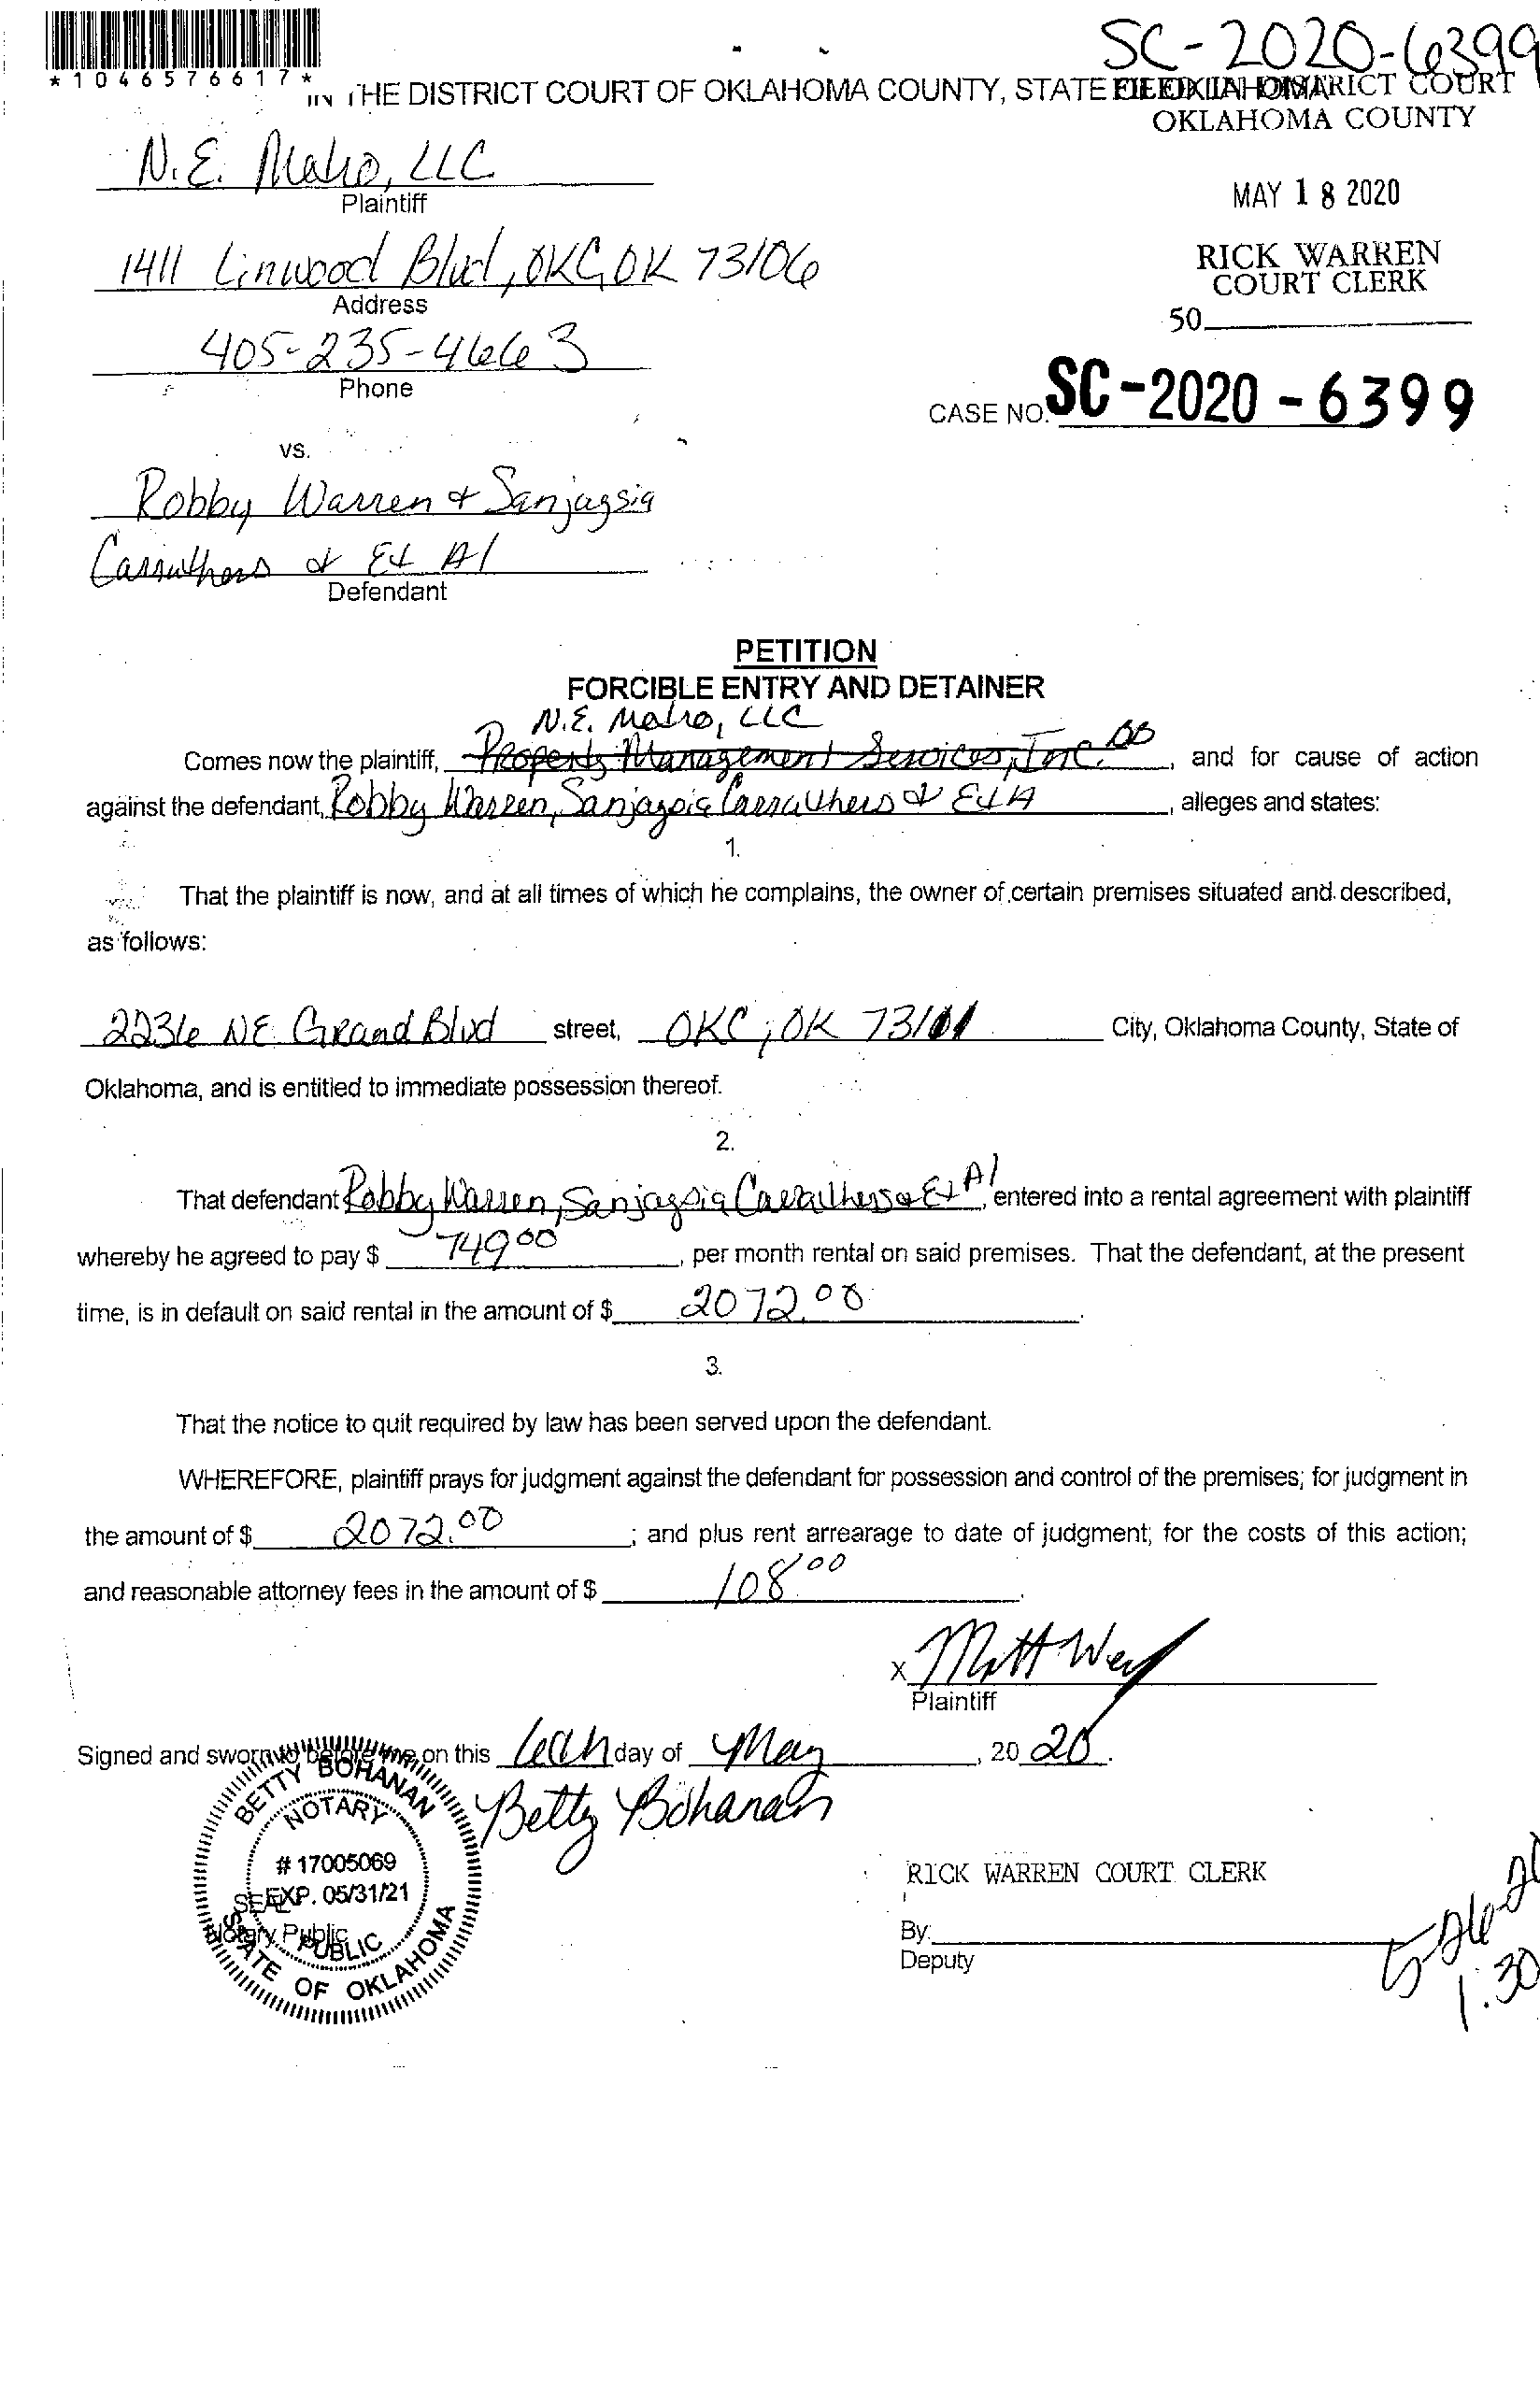 SC-2020-6399
*1046576617*
IN THE DISTRICT COURT OF OKLAHOMA COUNTY, STATE OF OKLAHOMA
FILED IN DISTRICT COURT
OKLAHOMA COUNTY
N.E. Metro, LLC
Plaintiff
MAY 18 2020
1411 Linwood Blvd, OKC, OK 73106
Address
RICK WARREN
COURT CLERK
50
405-235-4663
Phone
CASE NO. SC-2020-6399
vs.
Robby Warren & Sanjagsia
Carruthers & Et Al
Defendant
PETITION
FORCIBLE ENTRY AND DETAINER
N.E. Metro, LLC
Comes now the plaintiff, Property Management Services, Inc. BB, and for cause of action
against the defendant, Robby Warren, Sanjagsia Carruthers & Et A, alleges and states:
1.
That the plaintiff is now, and at all times of which he complains, the owner of certain premises situated and described,
as follows:
2236 NE Grand Blvd street, OKC, OK 73111 City, Oklahoma County, State of
Oklahoma, and is entitled to immediate possession thereof.
2.
That defendant Robby Warren, Sanjagsia Carruthers & Et Al, entered into a rental agreement with plaintiff
whereby he agreed to pay $ 749.00, per month rental on said premises. That the defendant, at the present
time, is in default on said rental in the amount of $ 2072.00.
3.
That the notice to quit required by law has been served upon the defendant.
WHEREFORE, plaintiff prays for judgment against the defendant for possession and control of the premises; for judgment in
the amount of $ 2072.00; and plus rent arrearage to date of judgment; for the costs of this action;
and reasonable attorney fees in the amount of $ 108.00.
X Matt
Plaintiff
Signed and sworn to before me on this day of May, 20 20.
Betty Bohanan
BETTY BOHANAN
NOTARY
# 17005069
EXP. 05/31/21
SEAL
Notary Public
PUBLIC
STATE OF OKLAHOMA
RICK WARREN COURT CLERK
By:
Deputy
1:30